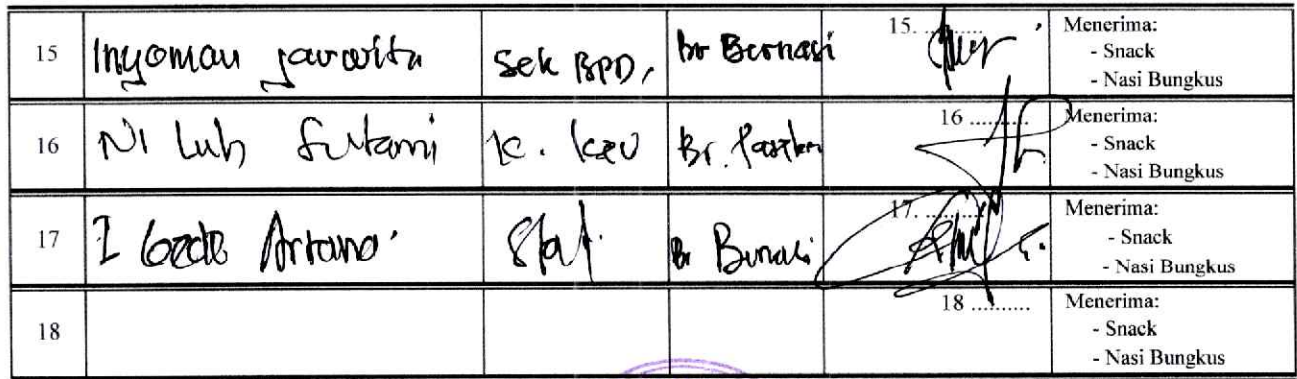 15 Inyoman jarwita Sek BPD, br Bernasi 15. .......... Menerima:
- Snack
- Nasi Bungkus
16 Ni Luh Sutami K. kau Br. 16 .......... Menerima:
- Snack
- Nasi Bungkus
17 I Gede Artana Staf Br Bernasi 17. .......... Menerima:
- Snack
- Nasi Bungkus
18 18 .......... Menerima:
- Snack
- Nasi Bungkus